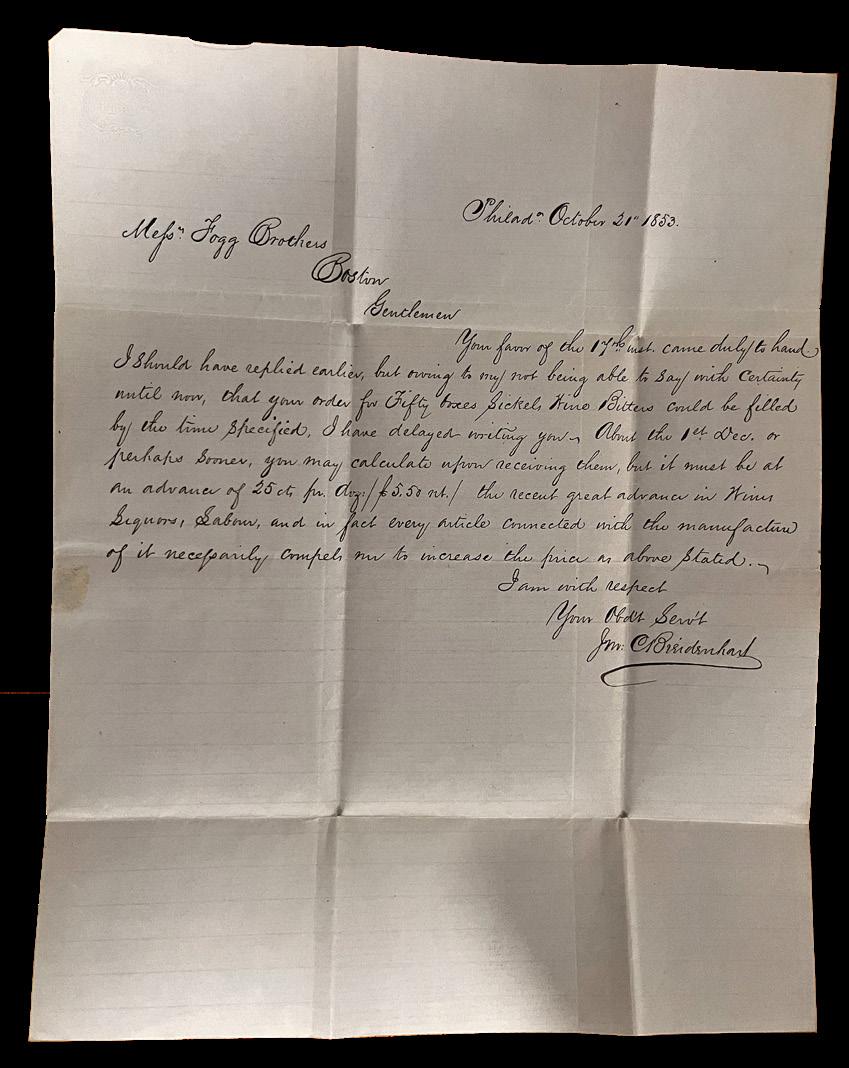 Philada. October 21st 1853.
Messrs. Fogg Brothers
Boston
Gentlemen
Your favor of the 17th inst. came duly to hand.
I should have replied earlier, but owing to my not being able to say with certainty
until now, that your order for Fifty boxes Sickels Wine Bitters could be filled
by the time specified, I have delayed writing you. About the 1st Dec. or
perhaps sooner, you may calculate upon receiving them, but it must be at
an advance of 25 cts pr. doz: /$5.50 nt./ the recent great advance in Wines
Liquors, Labour, and in fact every article connected with the manufacture
of it necessarily compels me to increase the price as above stated.
I am with respect
Your Obdt Servt
Jno: C Breidenhart